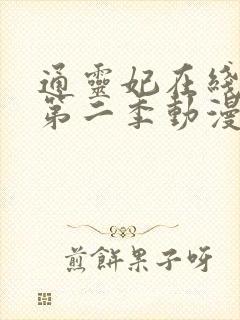 通靈妃在綫
第二季動漫
煎餅果子呀